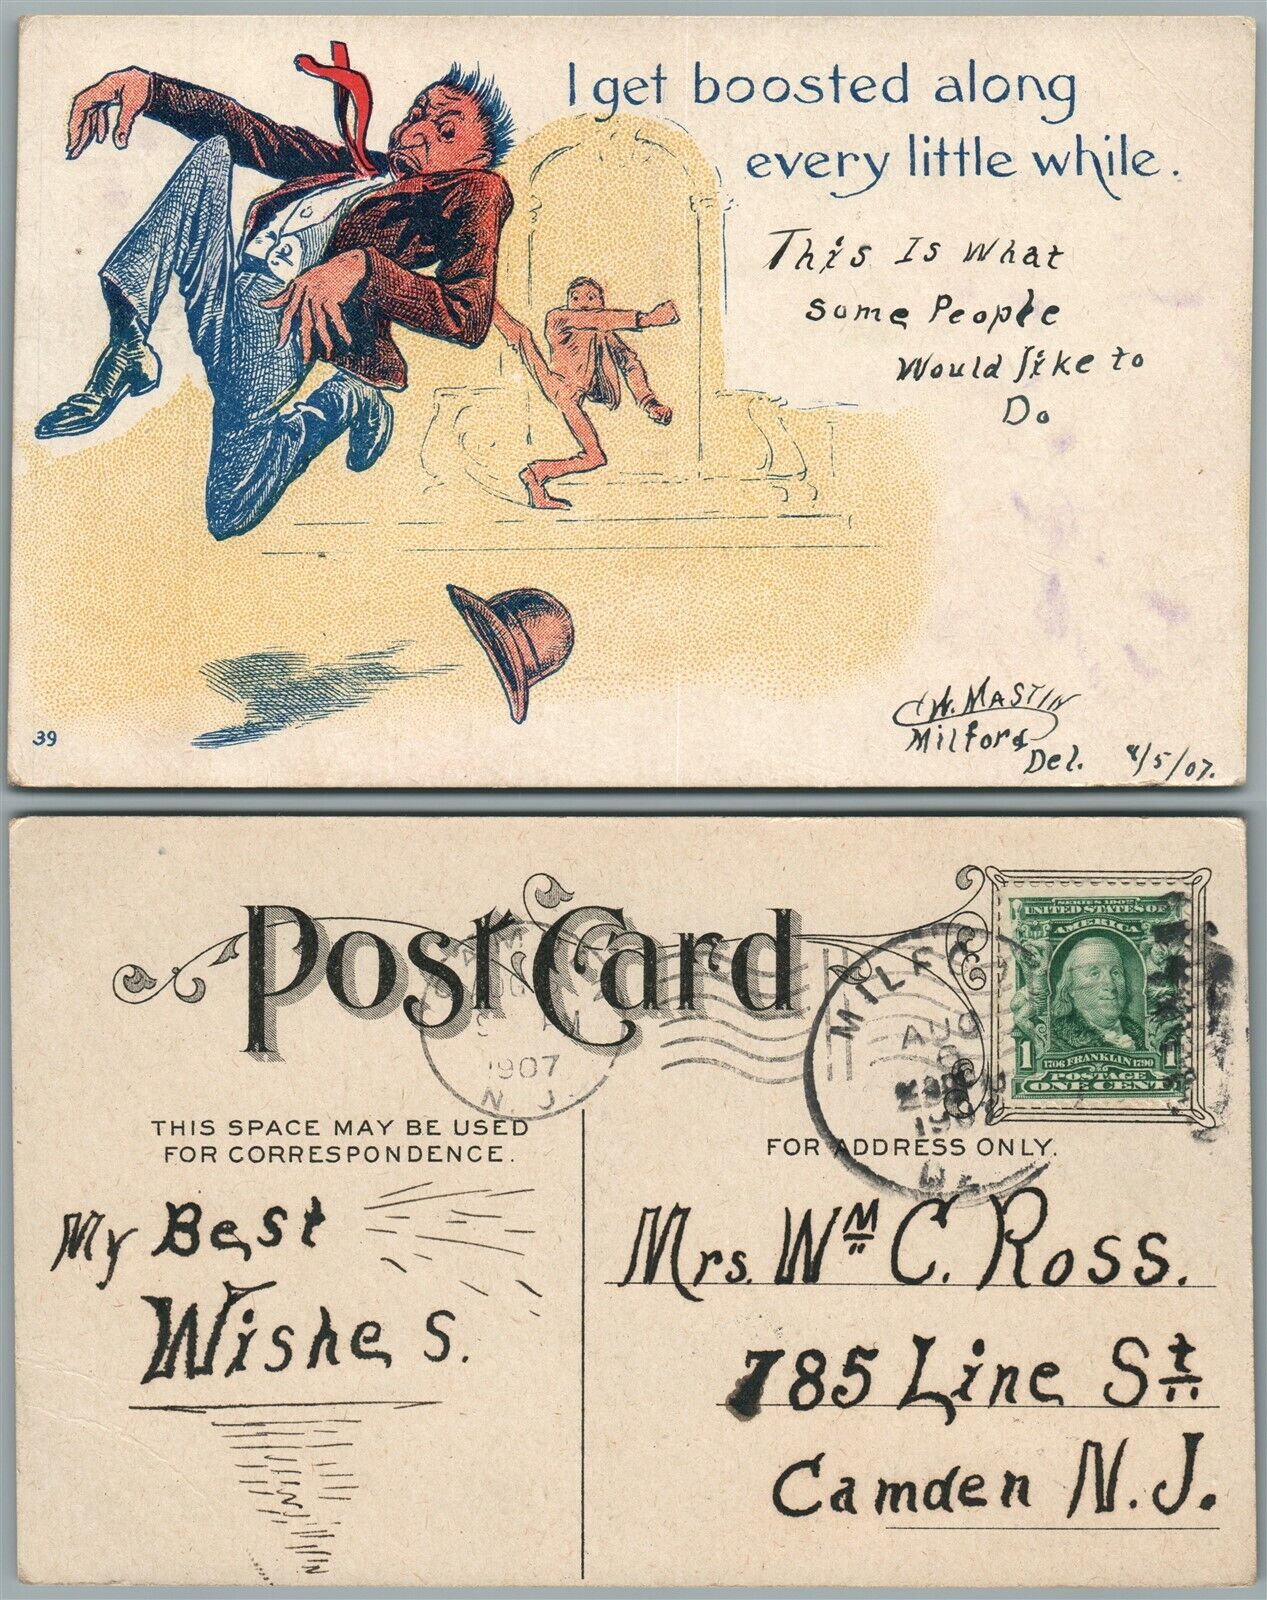 I get boosted along
every little while.
This Is What
Some People
Would like to
Do
39
C.W. MASTIN
Milford
Del. 8/5/07.
Post Card
AM
1907
N. J.
MILFORD
AUG
6
1907
SERIES 1902
UNITED STATES OF
AMERICA
1 1706 FRANKLIN 1790 1
POSTAGE
ONE CENT
THIS SPACE MAY BE USED
FOR CORRESPONDENCE.
FOR ADDRESS ONLY.
My Best
Wishes.
Mrs. Wm C. Ross.
785 Line St
Camden N.J.